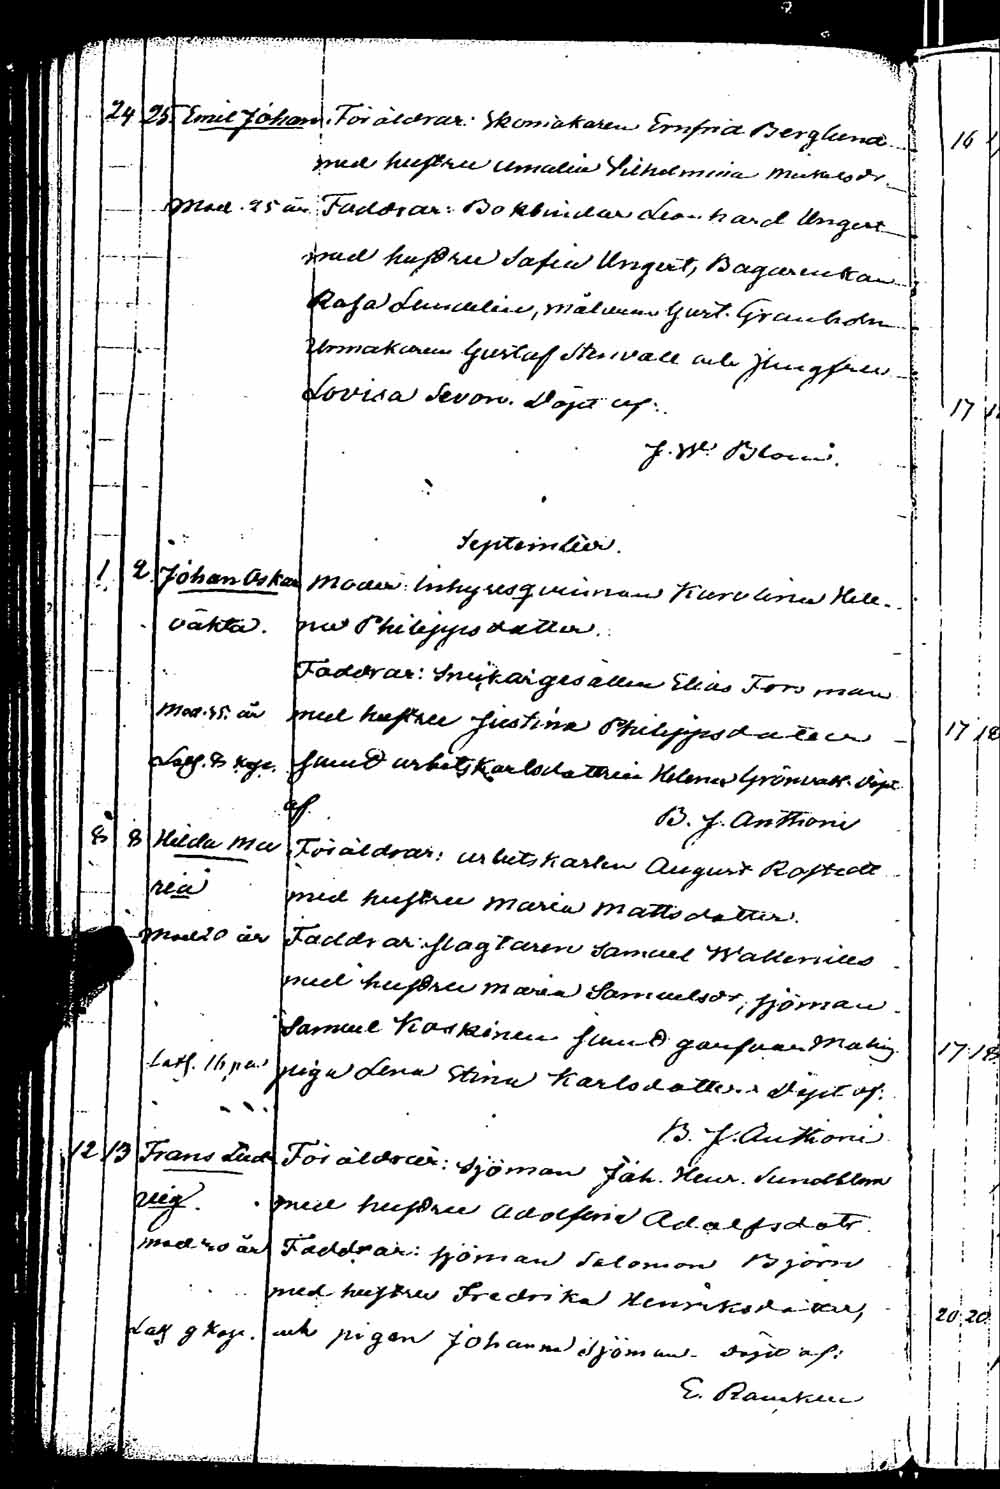 24 25. Emil Johan. Föräldrar: Skomakaren Ernfrid Berglund
med hustru Amalia Vilhelmina Mickelsdr.
Mod. 25 år. Faddrar: Bokbindar Leonhard Ungert
med hustru Sofia Ungert, Bagarenkan
Rosa Lundelin, målaren Gust. Granholm
Urmakaren Gustaf Stenvall och Jungfru
Lovisa Sevon. Döpt af:
J. W. Blom.
September.
1 2. Johan Oskar Moder: inhyresqvinnan Karolina Hele-
oäkta. na Philippsdotter.
Faddrar: Snickargesällen Elias Forsman
Mod. 35 år med hustru Justina Philippsdotter
samt arbetskarlsdottren Helena Grönvall. Döpt
af.
B. J. Anthoni
8 8 Hilda Ma Föräldrar: arbetskarlen August Rostedt
ria med hustru Maria Mattsdotter.
Mod 20 år Faddrar: slagtaren Samuel Wallenius
med hustru Maria Samuelsdr, sjöman
Samuel Koskinen samt
piga Lena Stina Karlsdotter. Döpt af:
B. J. Anthoni
12 13 Frans Lud Föräldrar: Sjöman Joh. Henr. Sundblom
vig. med hustru Adolfina Adolfsdotr.
Mod 20 år Faddrar: sjöman Salomon Björn
med hustru Fredrika Henriksdotter,
och pigan Johanna Sjöman. Döpt af:
E. Rancken
16
17
17 18
17 18
20 20